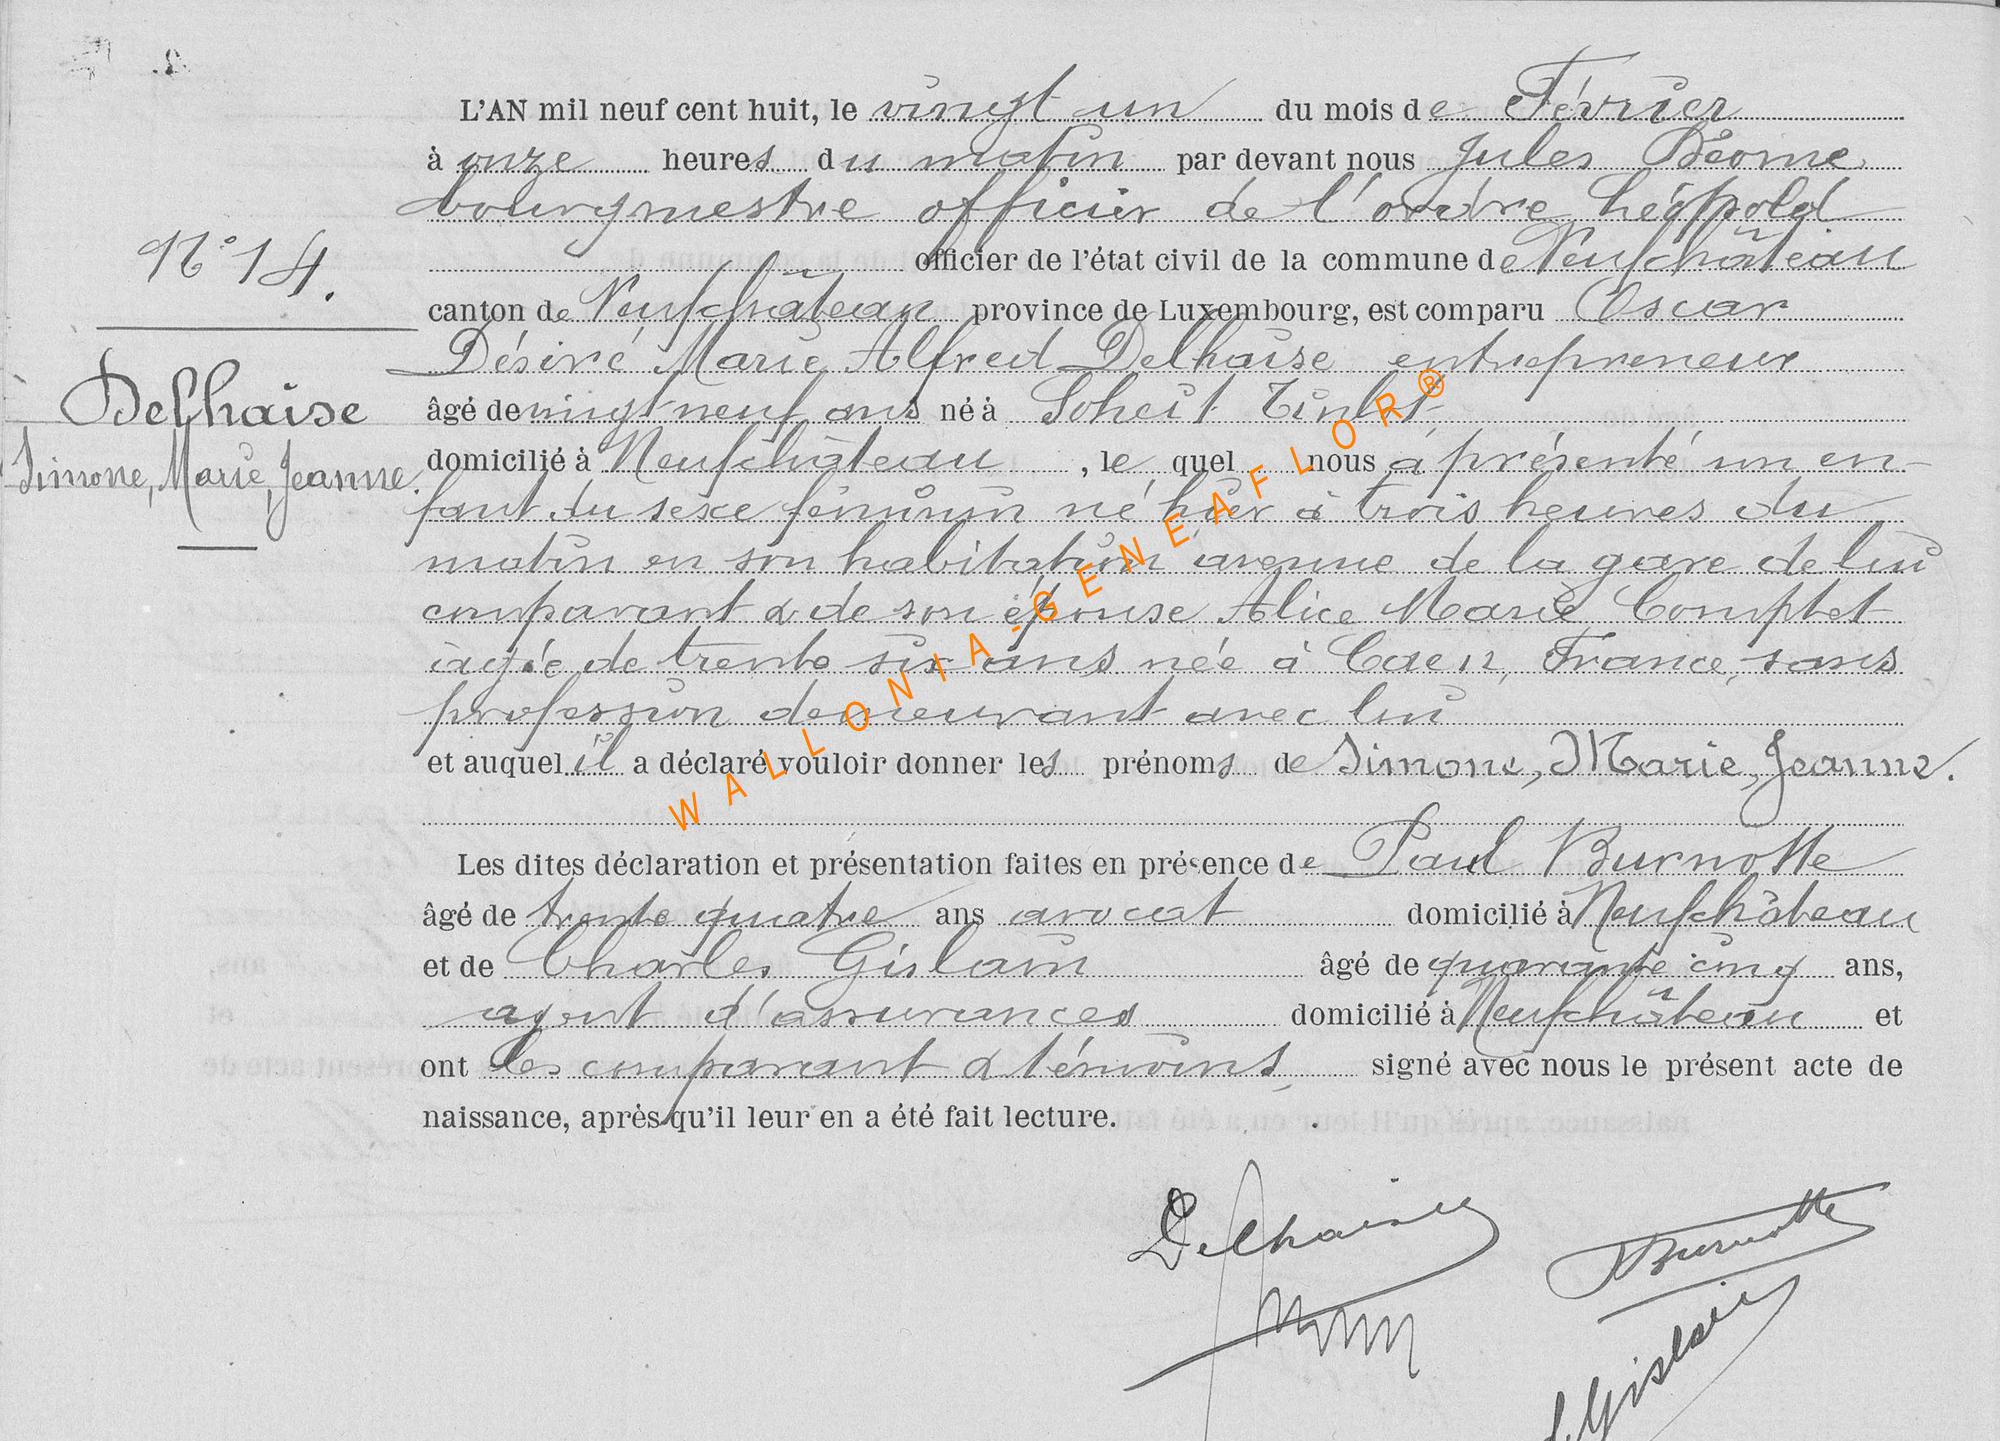 L'AN mil neuf cent huit, le vingt un du mois de Février
à onze heures du matin par devant nous Jules
bourgmestre officier de l'ordre Léopold
officier de l'état civil de la commune de Neufchâteau
N° 14.
canton de Neufchâteau province de Luxembourg, est comparu Oscar
Désiré Marie Alfred Delhaise entrepreneur
Delhaise
âgé de vingt neuf ans né à Soheit Tinlot
Simone, Marie, Jeanne.
domicilié à Neufchâteau, le quel nous a présenté un en-
fant du sexe féminin né hier à trois heures du
matin en son habitation avenue de la gare de lui
comparant & de son épouse Alice Marie Comptet
âgée de trente six ans née à Caen, France, sans
profession demeurant avec lui
et auquel il a déclaré vouloir donner les prénoms de Simone, Marie, Jeanne.
Les dites déclaration et présentation faites en présence de Paul Burnotte
âgé de trente quatre ans avocat domicilié à Neufchâteau
et de Charles Gislain âgé de quarante cinq ans,
agent d'assurances domicilié à Neufchâteau et
ont les comparant & témoins signé avec nous le présent acte de
naissance, après qu'il leur en a été fait lecture.
Delhaise
Burnotte
Gislain
WALLONIA-GENEAFLOR®